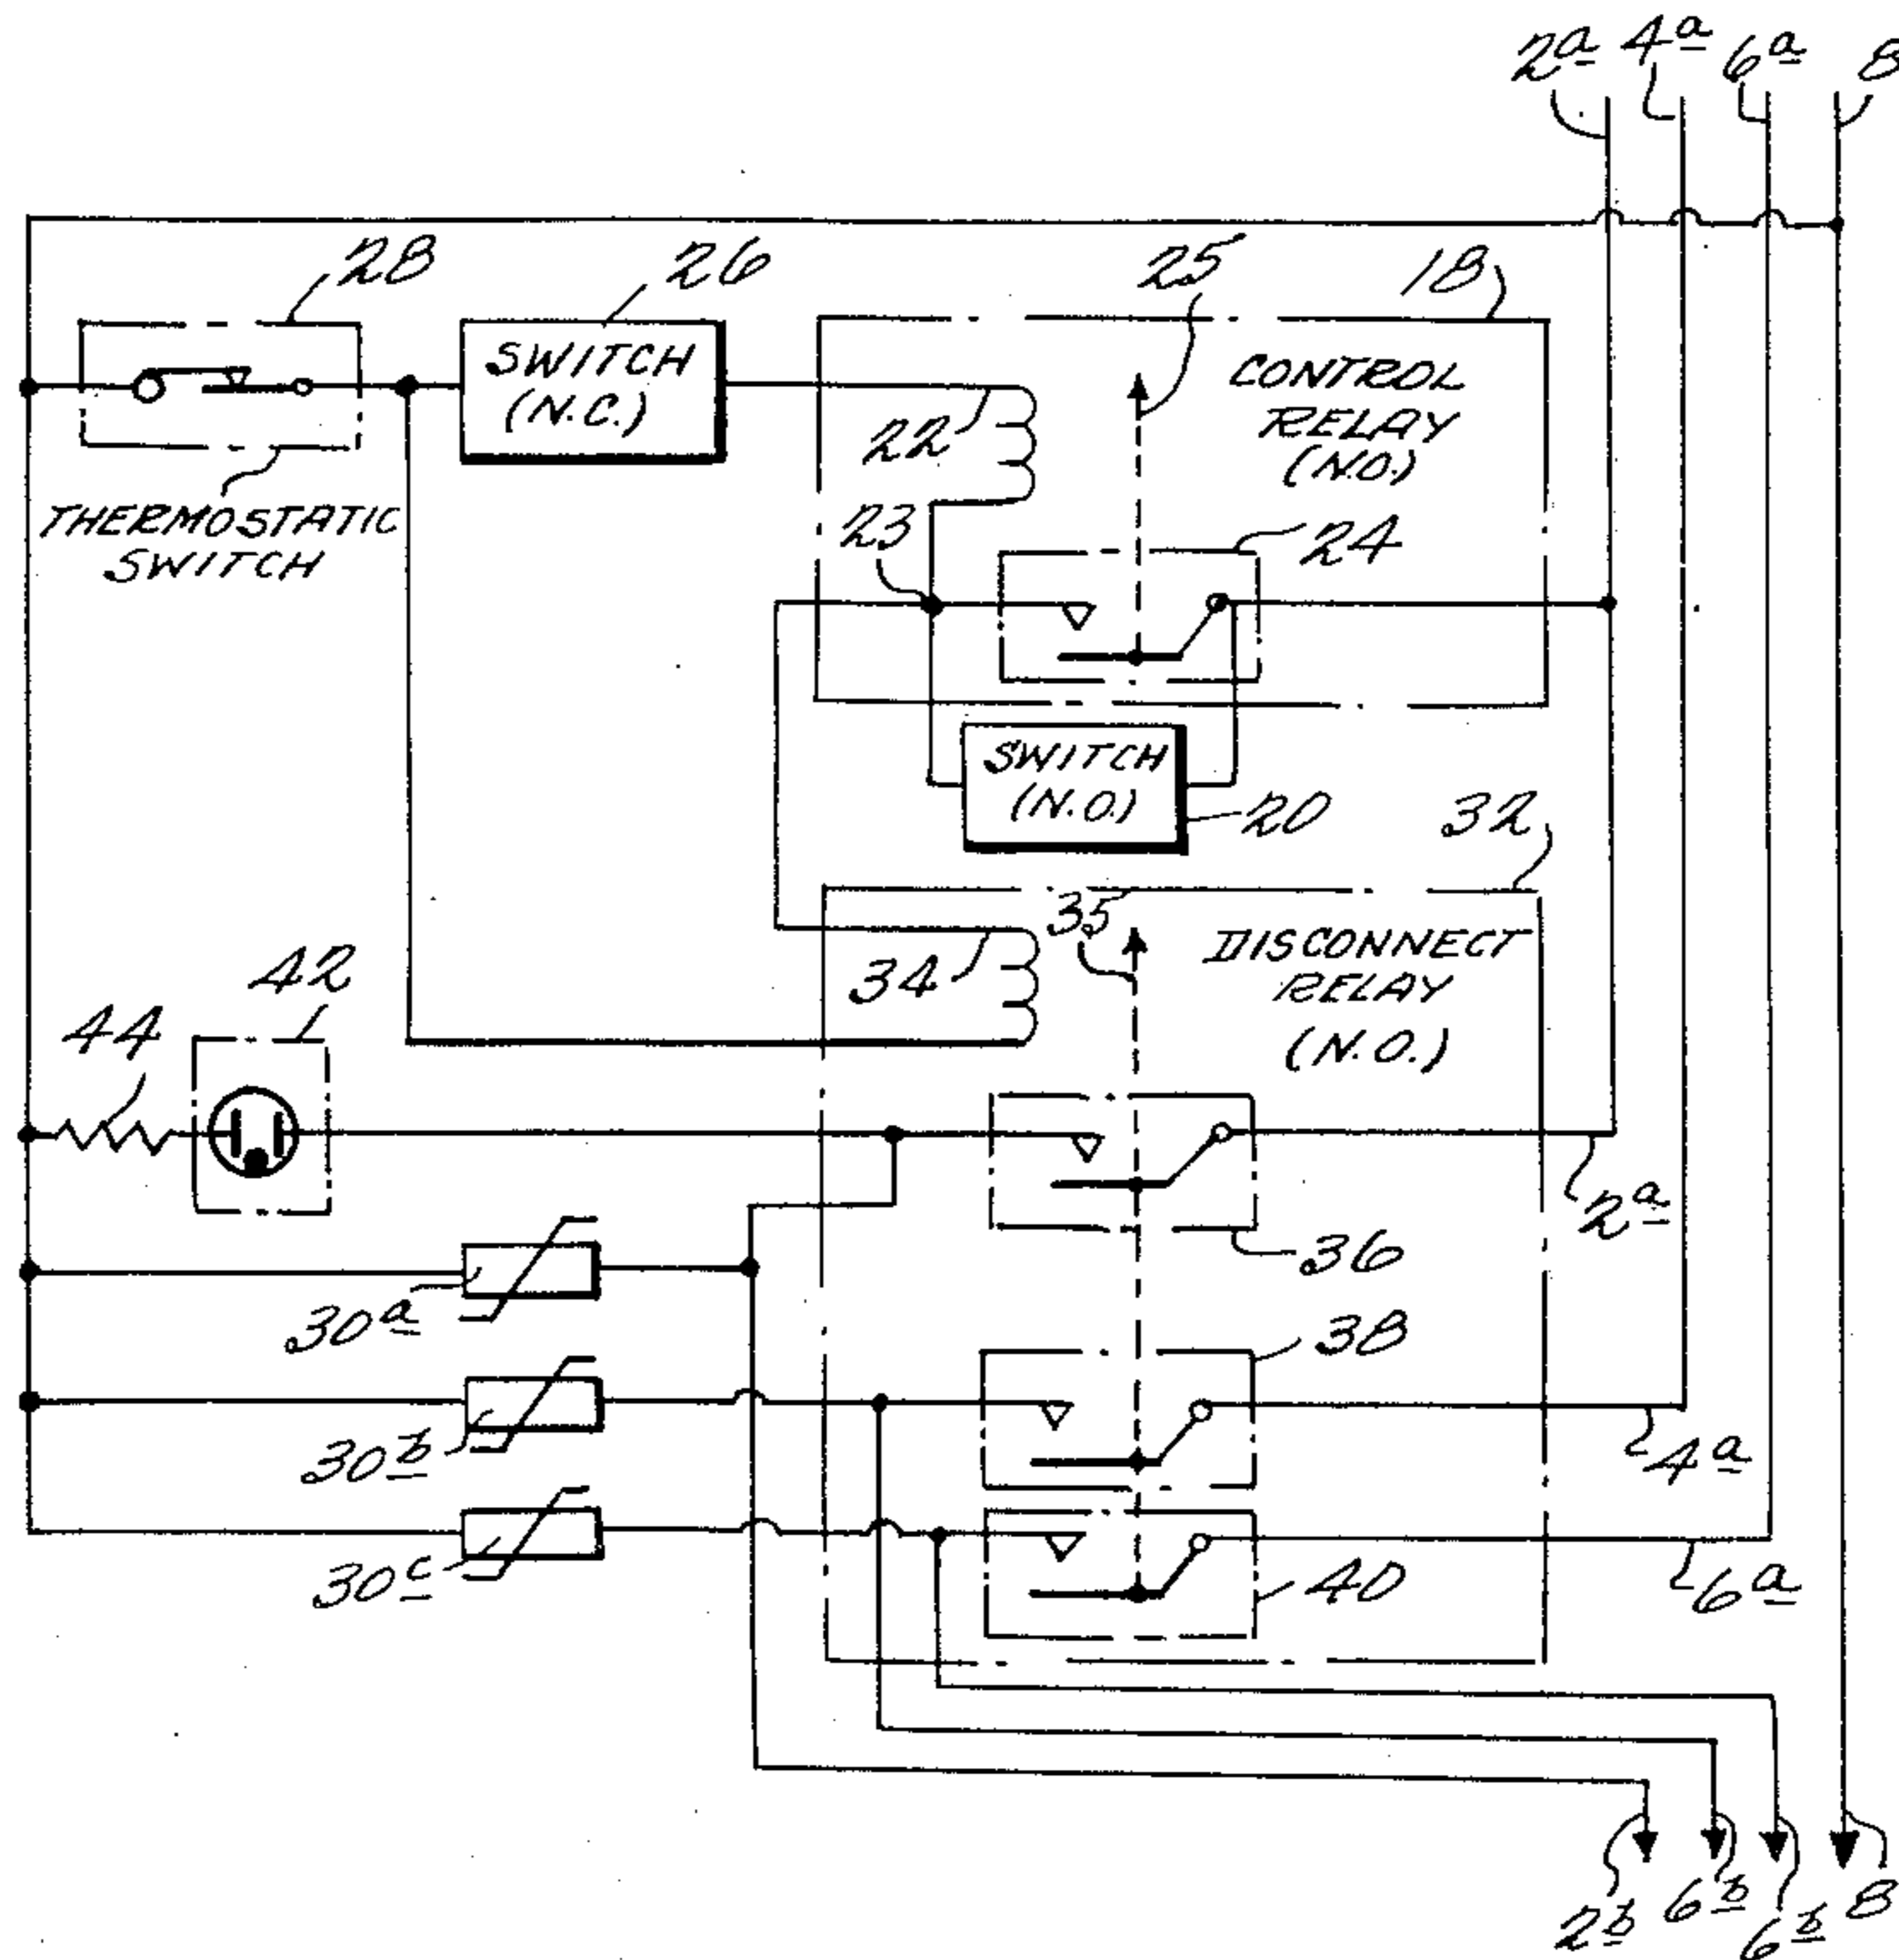 2a 4a 6a 8
28 26 25 18
SWITCH
(N.C.)
CONTROL
RELAY
(N.O.)
22
THERMOSTATIC
SWITCH
23
24
SWITCH
(N.O.)
20
32
35
DISCONNECT
RELAY
(N.O.)
34
42
44
2a
36
30a
38
30b
4a
30c
40
6a
2b 6b 6b 8